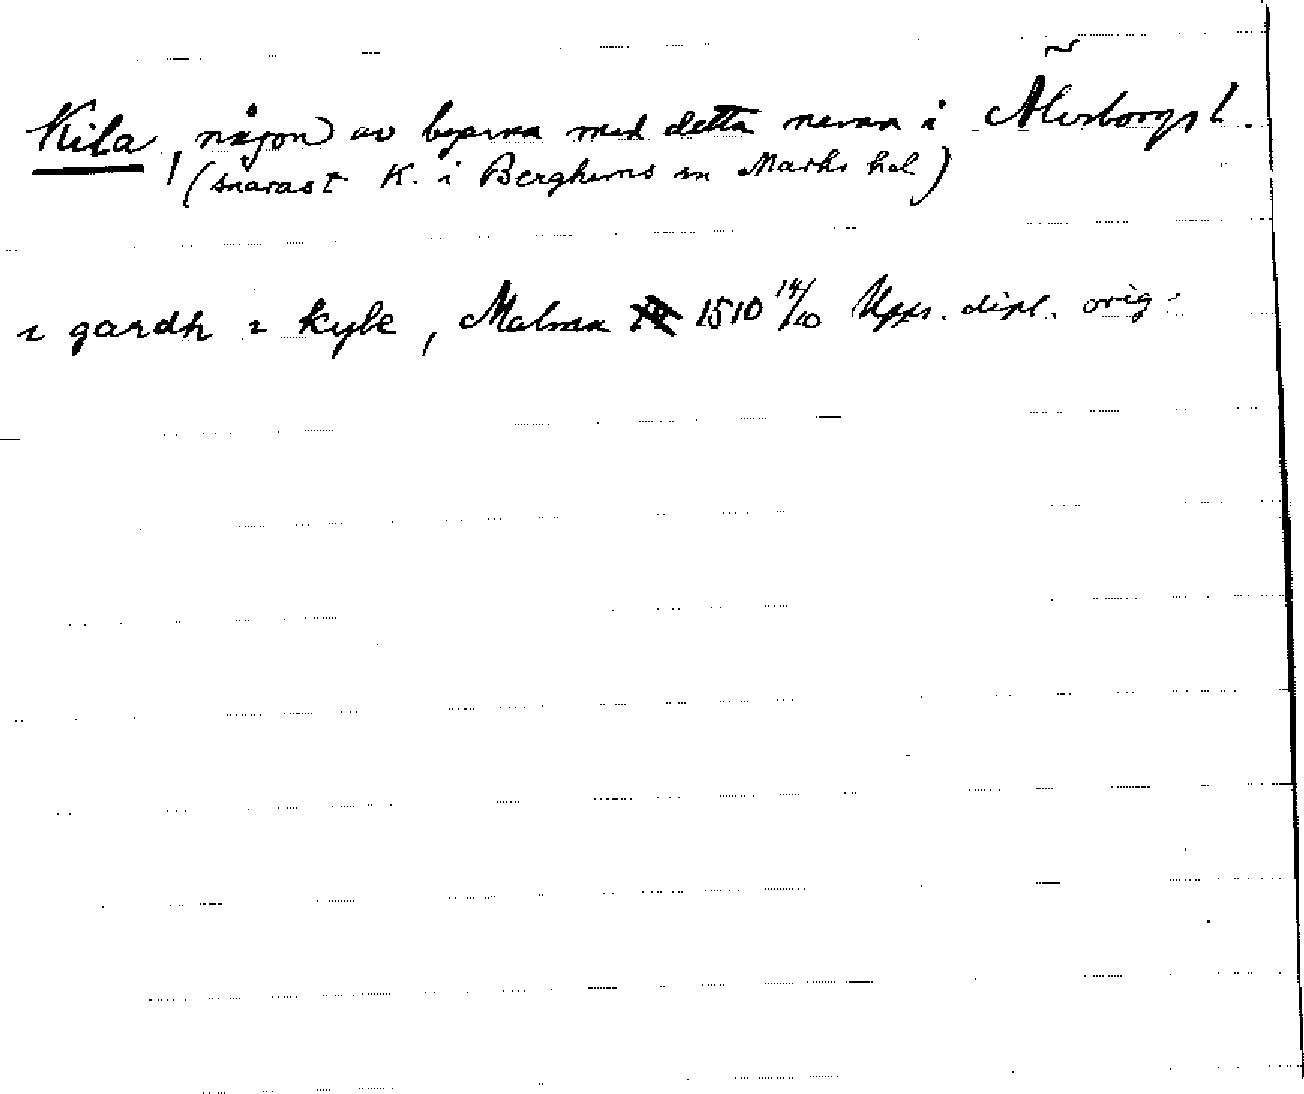 Kila, någon av byarna med detta namn i Älvsborgs l.
(snarast K. i Berghems sn Marks hd)
i gardh i kyle, Malmn 1510 14/10 Upps. dipl. orig.